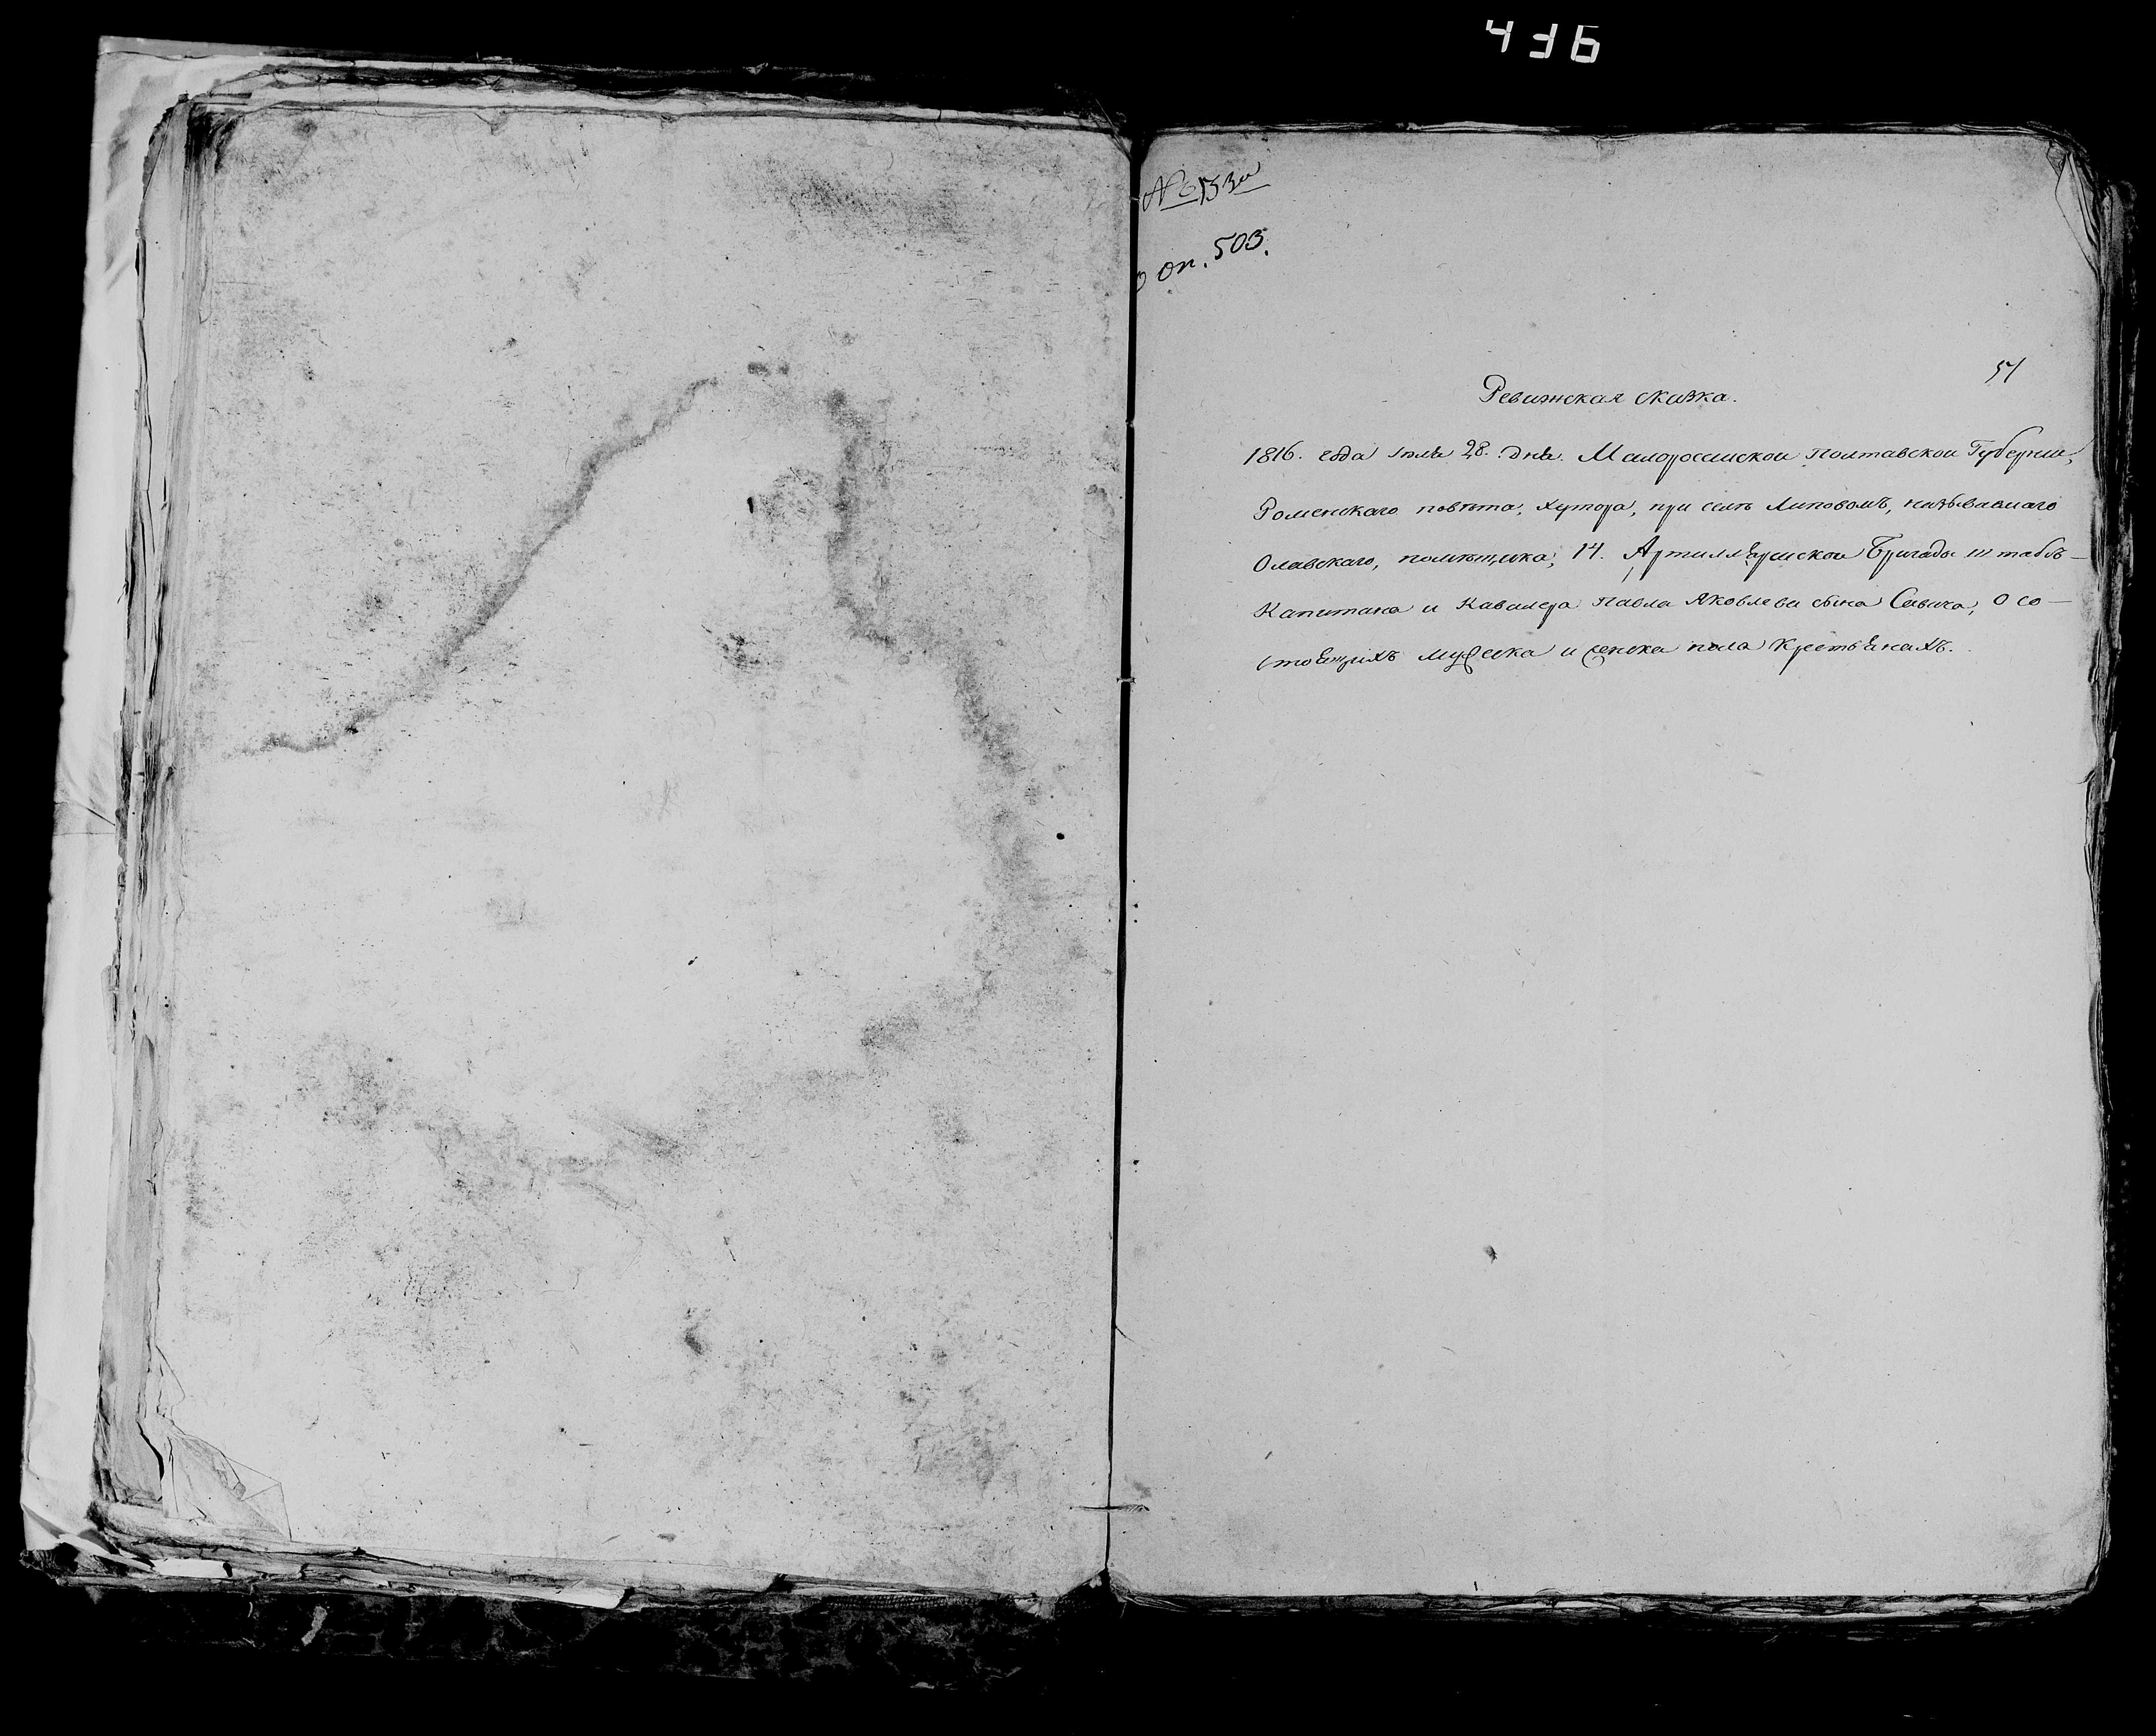 436
№ 133й
оп. 503.
51
Ревижская сказка.
1816. года Іюля 28. дня. Малороссиской Полтавской Губернии,
Роменскаго повѣта, хутора, при селѣ Липовомъ, называемаго
помѣщика, 14. Артиллѣриской Бригады штабсъ-
Капитана и Кавалера Павла Яковлева сына Савича, о со-
стоящихъ мужеска и женска пола Крестьянахъ.